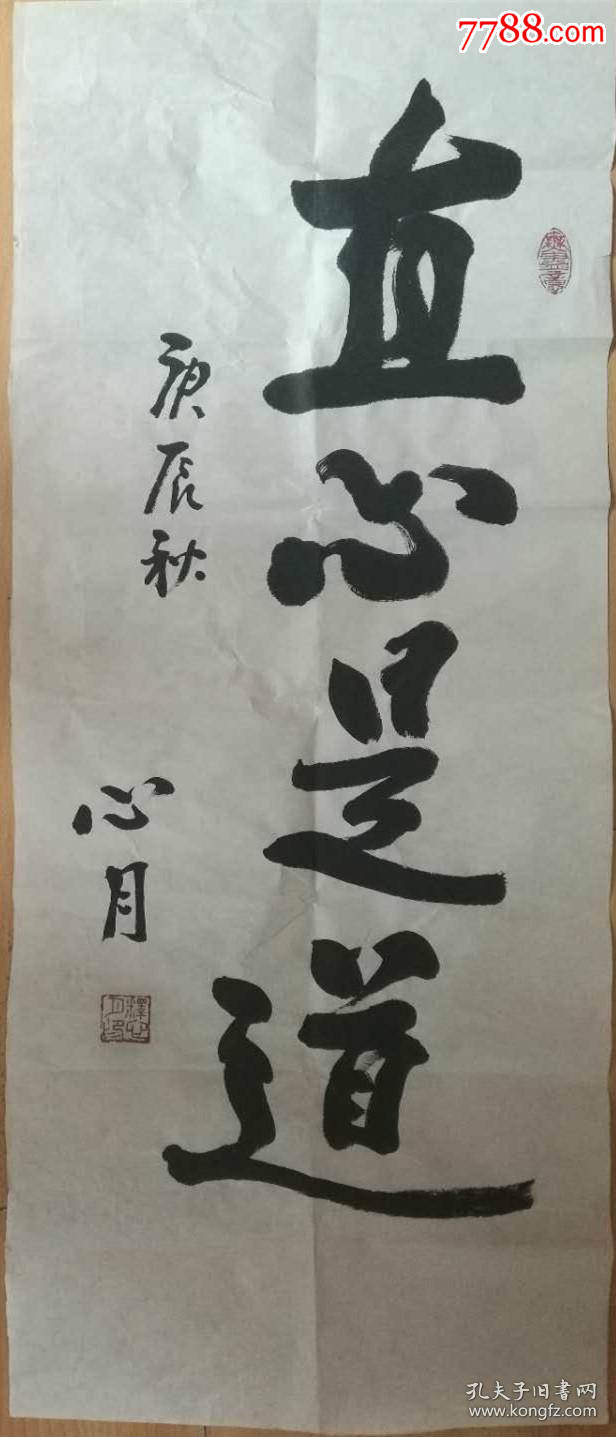 7788.com
直心是道
庚辰秋
心月
釋心月印
无量壽
孔夫子旧书网
www.kongfz.com